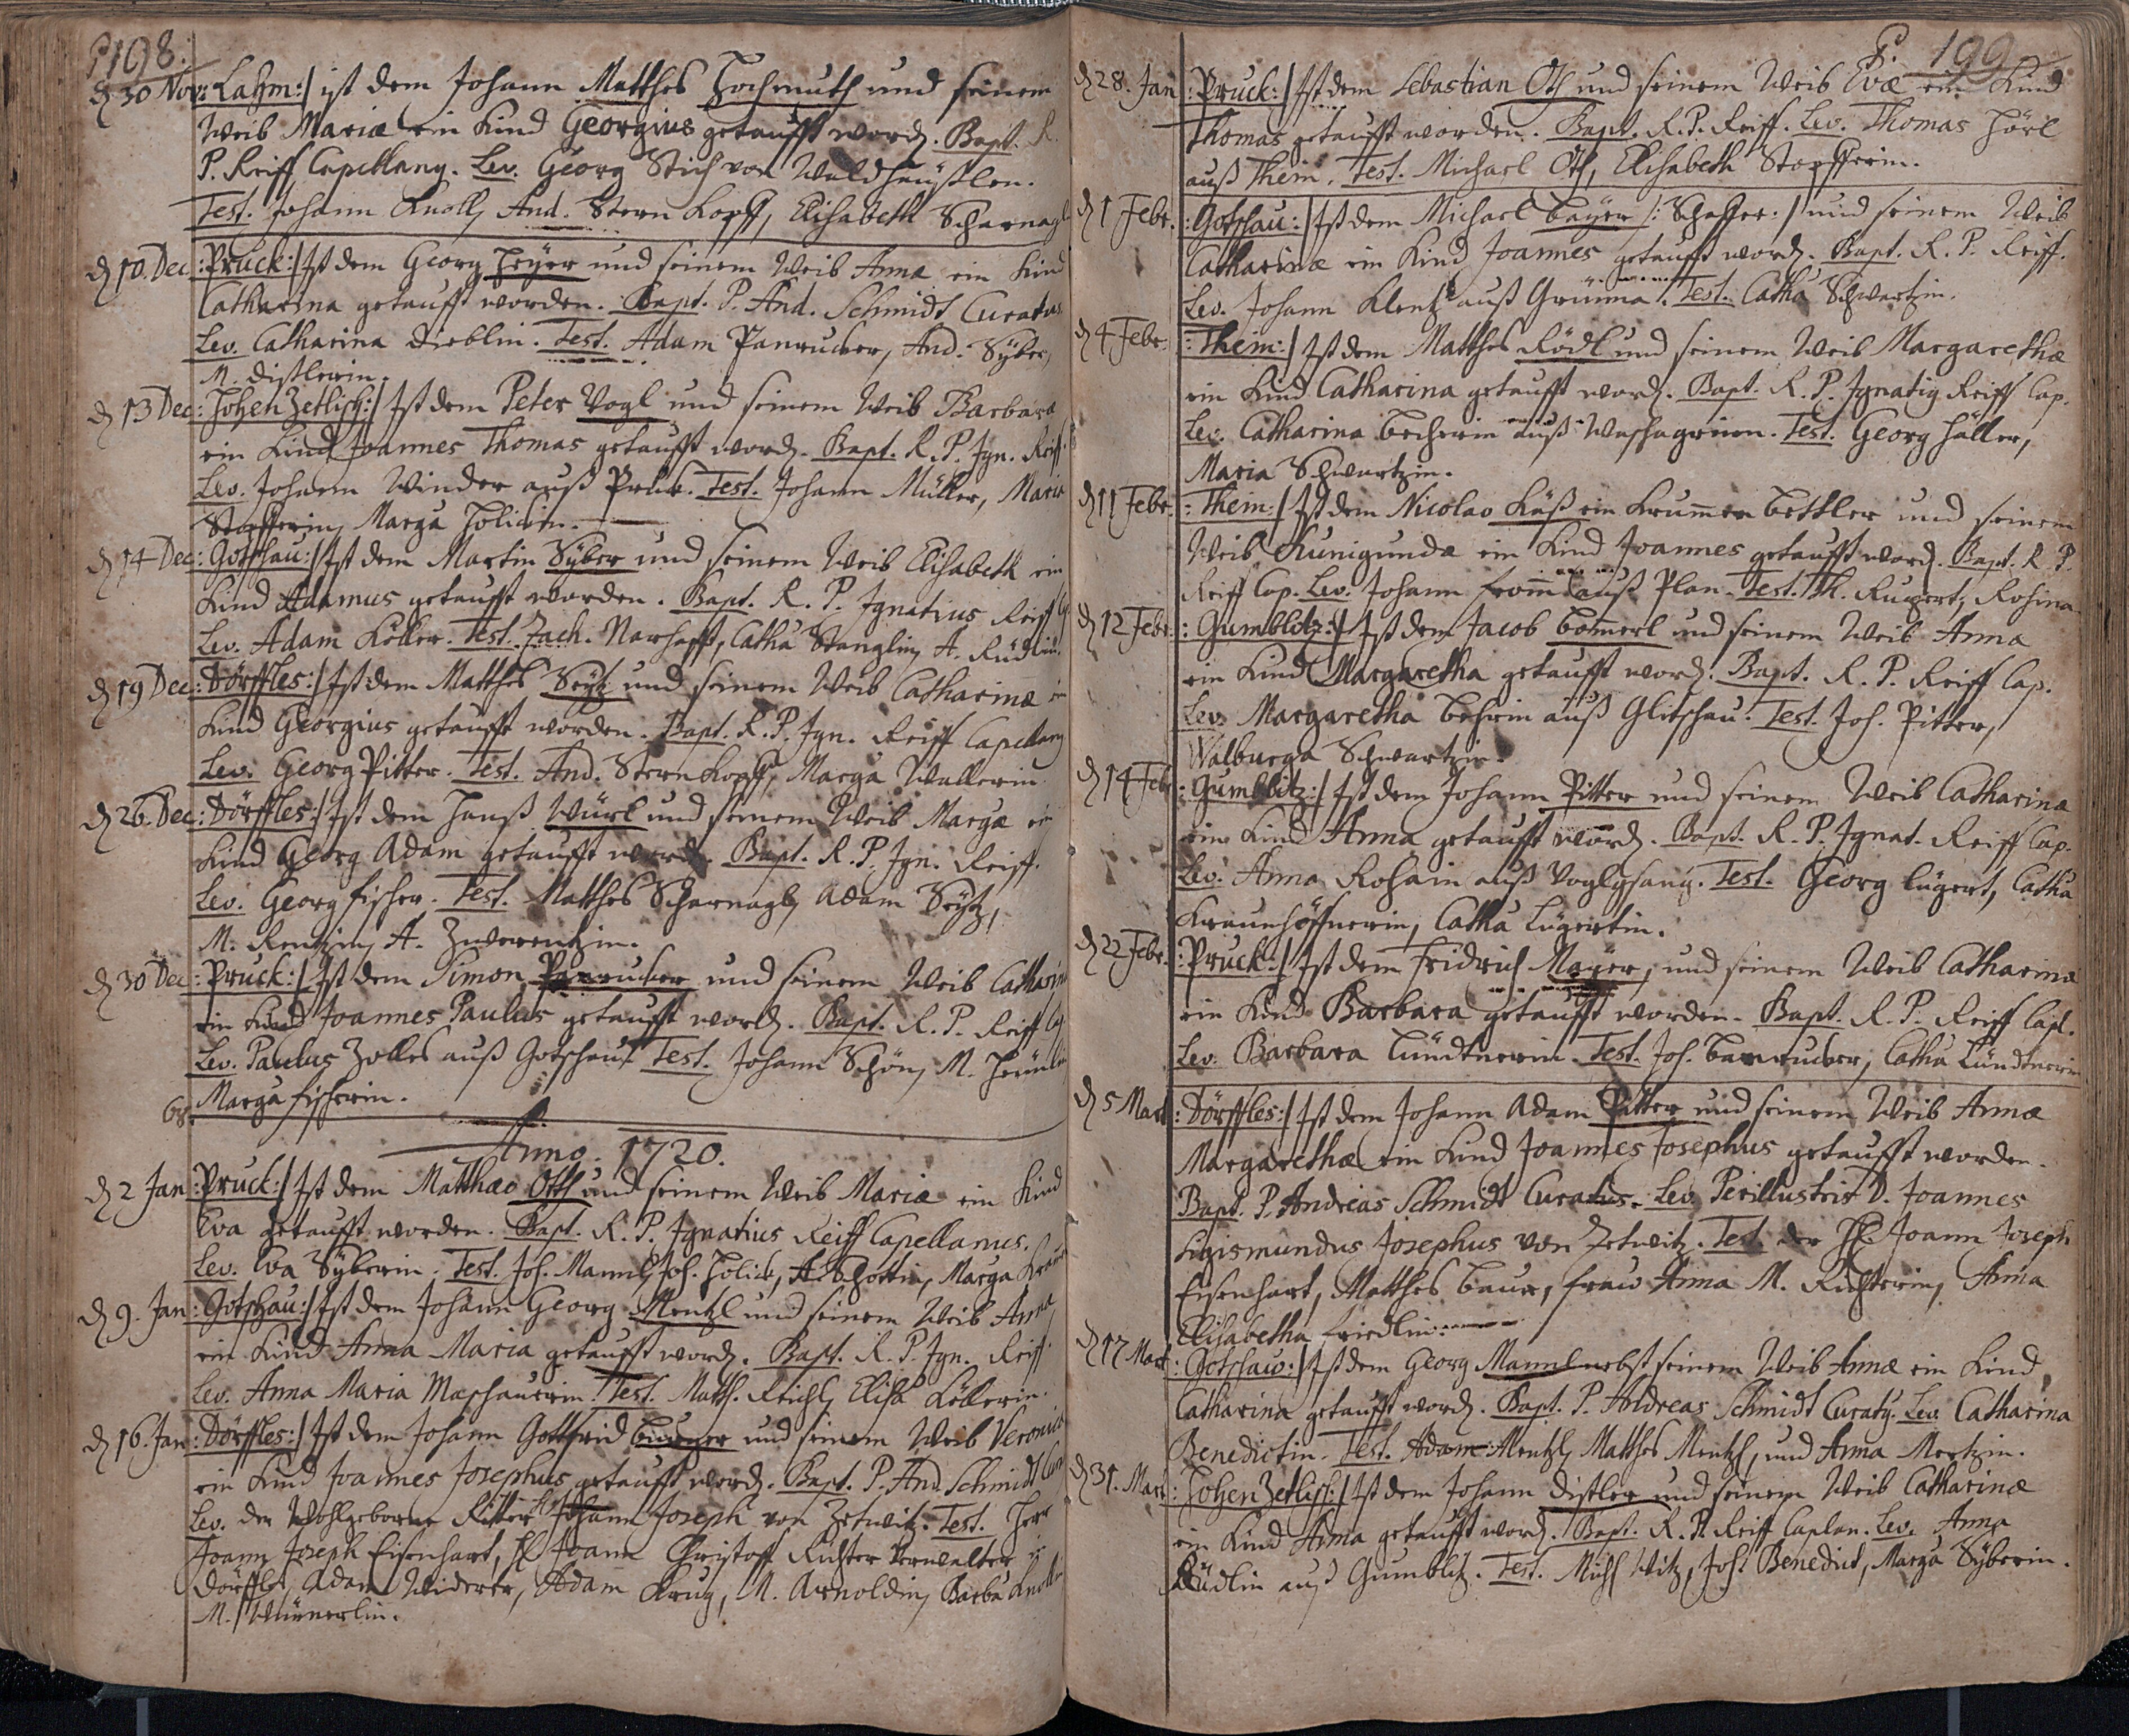 P 198.
d 30 Nov: Lahm:/ ist dem Johann Matthes Hochmuth und seinem
Weib Mariæ ein Kind Georgius getaufft word. Bapt. R.
P. Reiff Capellang. Lev. Georg Stich von Waldheüßlen.
Test. Johann Knoll, And. Stern Kopff, Elisabeth Scharnagl
d 10. Dec: Pruck:/ Ist dem Georg Heyer und seinem Weib Anna ein Kind
Catharina getaufft worden. Bapt. P. And. Schmidt Curatus
Lev. Catharina Dieblin. Test. Adam Panrucker, And. Syber,
M. Distlerin.
d 13 Dec: Hohen Zetlisch:/ Ist dem Peter Vogl und seinem Weib Barbara
ein Kind Joannes Thomas getaufft word. Bapt. R. P. Ign. Reiff.
Lev. Johann Winder auß Pruk. Test. Johann Müller, Maria
Stopfferin, Marga Holickin.
d 14 Dec: Gotschau:/ Ist dem Martin Syber und seinem Weib Elisabeth ein
Kind Adamus getaufft worden. Bapt. R. P. Ignatius Reiff
Lev. Adam Köller. Test. Zach. Narhafft, Catha Stanglin, A. Rüdlin.
d 19 Dec: Dörffles:/ Ist dem Matthes Seytz und seinem Weib Catharinæ
Kind Georgius getaufft worden. Bapt. R. P. Ign. Reiff Capellang
Lev. Georg Pitter. Test. And. Stern Kopff, Marga Wallerin
d 26. Dec: Dörffles:/ Ist dem Hanß Würl und seinem Weib Marga ein
Kind Georg Adam getaufft word. Bapt. R. P. Ign. Reiff.
Lev. Georg Fischer. Test. Matthes Scharnagl, Adam Seytz,
M. Rentzin, A. Zwerentzin.
d 30 Dec: Pruck:/ Ist dem Simon Panrucker und seinem Weib Catharina
ein Kind Joannes Paulus getaufft word. Bapt. R. P. Reiff
Lev. Paulus Zolles auß Gotschau. Test. Johann Schön, M.
68. Marga Fischerin.
Anno. 1720.
d 2 Jan: Pruck:/ Ist dem Matthæo Oth und seinem Weib Mariæ ein Kind
Eva getaufft worden. Bapt. R. P. Ignatius Reiff Capellanus.
Lev. Eva Syberin. Test. Joh. Mannl, Joh. Holick, A. Schottin, Marga
d 9. Jan: Gotschau:/ Ist dem Johann Georg Mentzl und seinem Weib Anna
ein Kind Anna Maria getaufft word. Bapt. R. P. Ign. Reiff
Lev. Anna Maria Maschauerin. Test. Matth. Reichl, Elisa Köllerin.
d 16. Jan: Dörffles:/ Ist dem Johann Gottfrid Burger und seinem Weib Veronica
ein Kind Joannes Josephus getaufft word. Bapt. P. And. Schmidt
Lev. der Wohlgeborne Ritter Johann Joseph von Zetwitz. Test. Herr
Joann Joseph Eisenhart, H. Joann Christoff Richter Verwalter
Dörffles, Adam Widerer, Adam Krug, M. Arnoldin, Barba
M.
P 199
d 28. Jan: Pruck:/ Ist dem Sebastian Oth und seinem Weib Evæ ein Kind
Thomas getaufft worden. Bapt. R. P. Reiff. Lev. Thomas Hörl
auß Thein. Test. Michael Oth, Elisabeth Stopfferin.
d 1 Febr: Gotschau:/ Ist dem Michael Bayer /: Schaffer:/ und seinem Weib
Catharinæ ein Kind Joannes getaufft word. Bapt. R. P. Reiff.
Lev. Johann Klentz auß Grünna. Test. Catha Schwartzin.
d 4 Febr: Thein:/ Ist dem Matthes Rödl und seinem Weib Margarethæ
ein Kind Catharina getaufft word. Bapt. R. P. Ignatig Reiff Cap.
Lev. Catharina Becherin auß Waschagrün. Test. Georg Häller,
Maria Schwartzin.
d 11 Febr: Thein:/ Ist dem Nicolao Käß ein Krummer Bettler und seinem
Weib Kunigunda ein Kind Joannes getaufft word. Bapt. R. P.
Reiff Cap. Lev. Johann auß Plan. Test. Rosina
d 12 Febr: Gumblitz:/ Ist dem Jacob Bomerl und seinem Weib Anna
ein Kind Margaretha getaufft word. Bapt. R. P. Reiff Cap.
Lev. Margaretha Beherin auß Glitschau. Test. Joh. Pitter,
Walburga Schwartzin.
d 14 Feb: Gumblitz:/ Ist dem Johann Pitter und seinem Weib Catharina
ein Kind Anna getaufft word. Bapt. R. P. Ignat. Reiff Cap.
Lev. Anna auß Voglgsang. Test. Georg Lügert, Catha
Kraunhöffnerin, Catha Lügertin.
d 22 Febr: Pruck:/ Ist dem Fridrich Mayer, und seinem Weib Catharina
ein Kind Barbara getaufft worden. Bapt. R. P. Reiff Capl.
Lev. Barbara Lündtnerin. Test. Joh. Banrucker, Catha Lündtnerin
d 5 Mart: Dörffles:/ Ist dem Johann Adam Pitter und seinem Weib Annæ
Margarethæ ein Kind Joannes Josephus getaufft worden.
Bapt. P. Andreas Schmidt Curatus. Lev. Perillustris D. Joannes
Sigismundus Josephus von Zetwitz. Test. der H. Joann Joseph
Eisenhart, Matthes Baur, Fraw Anna M. Richterin, Anna
Elisabetha Friedlin.
d 17 Mart: Gotschaw:/ Ist dem Georg Mannl nebst seinem Weib Annæ ein Kind
Catharina getaufft word. Bapt. P. Andreas Schmidt Curatg. Lev. Catharina
Benedictin. Test. Adam Mentzl, Matthes Mentzl, und Anna Mertzin.
d 31. Mart: Hohen Zetlisch:/ Ist dem Johann Distler und seinem Weib Catharinæ
ein Kind Anna getaufft word. Bapt. R. P. Reiff Caplan. Lev. Anna
Rüdlin auß Gumblitz. Test. Michl Witz, Joh. Benedict, Marga Syberin.